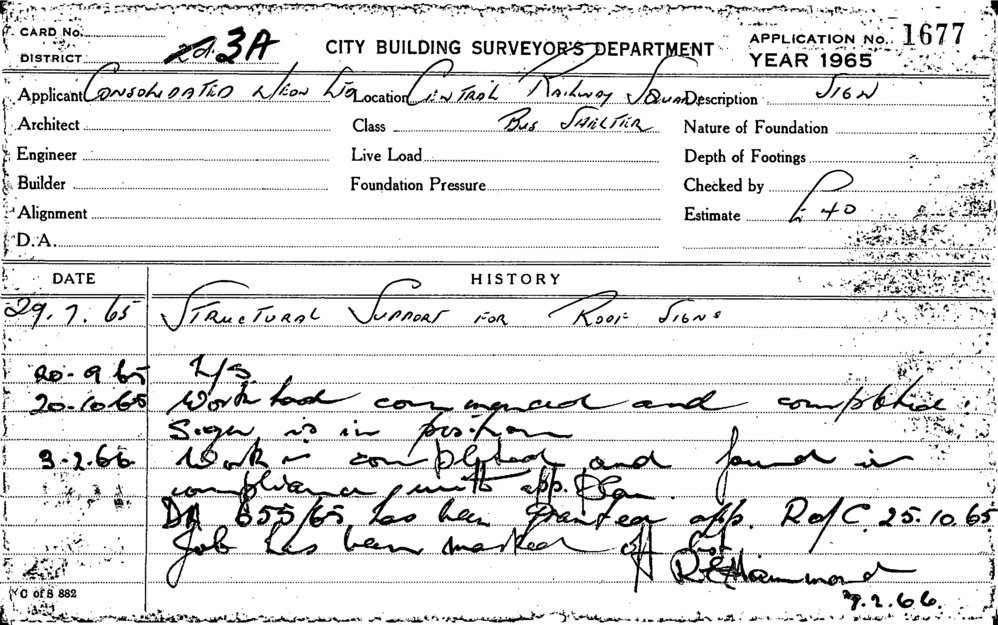 CARD No. CITY BUILDING SURVEYOR'S DEPARTMENT APPLICATION No. 1677
DISTRICT 3A YEAR 1965
Applicant CONSOLIDATED NEON Location CENTRAL RAILWAY SQUARE Description SIGN
Architect Class BUS SHELTER Nature of Foundation
Engineer Live Load Depth of Footings
Builder Foundation Pressure Checked by
Alignment Estimate £ 40
D.A.
DATE HISTORY
29.7.65 STRUCTURAL SUPPORT FOR ROOF SIGNS
20-9 65 N/S
20-10-65 Work had commenced and completed.
Sign is in position
3-2.66. Work is completed and found in
compliance with app. plan.
DA 655/65 has been granted app. R of C 25.10.65
Job has been marked off list
R E Hammond
7.2.66.
C of S 882